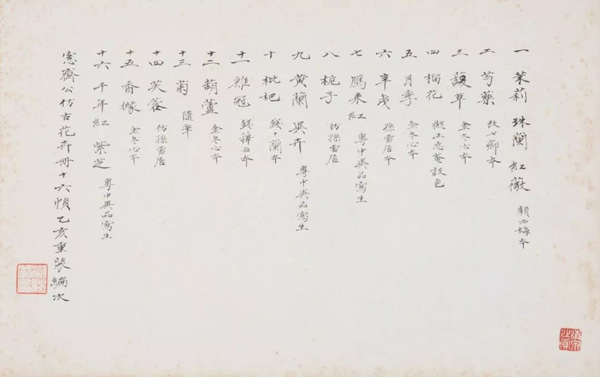 一 茉莉 珠蘭 紅薇 顧西梅本
二 芍藥 改七薌本
三 諼草 金冬心本
四 榴花 撫王忘菴設色
五 月季 金冬心本
六 孫雪居本
七 雁來紅 粵中異品寫生
八 桅子 仿孫雪居
九 黄蘭 異卉 粵中異品寫生
十 枇杷 錢十蘭本
十一 雞冠 錢籜石本
十二 葫蘆 金冬心本
十三 菊 隨筆
十四 芙蓉 仿孫雪居
十五 香櫞 金冬心本
十六 千年紅 紫芝 粵中異品寫生
愙齋公仿古花卉册十六幀乙亥重裝編次